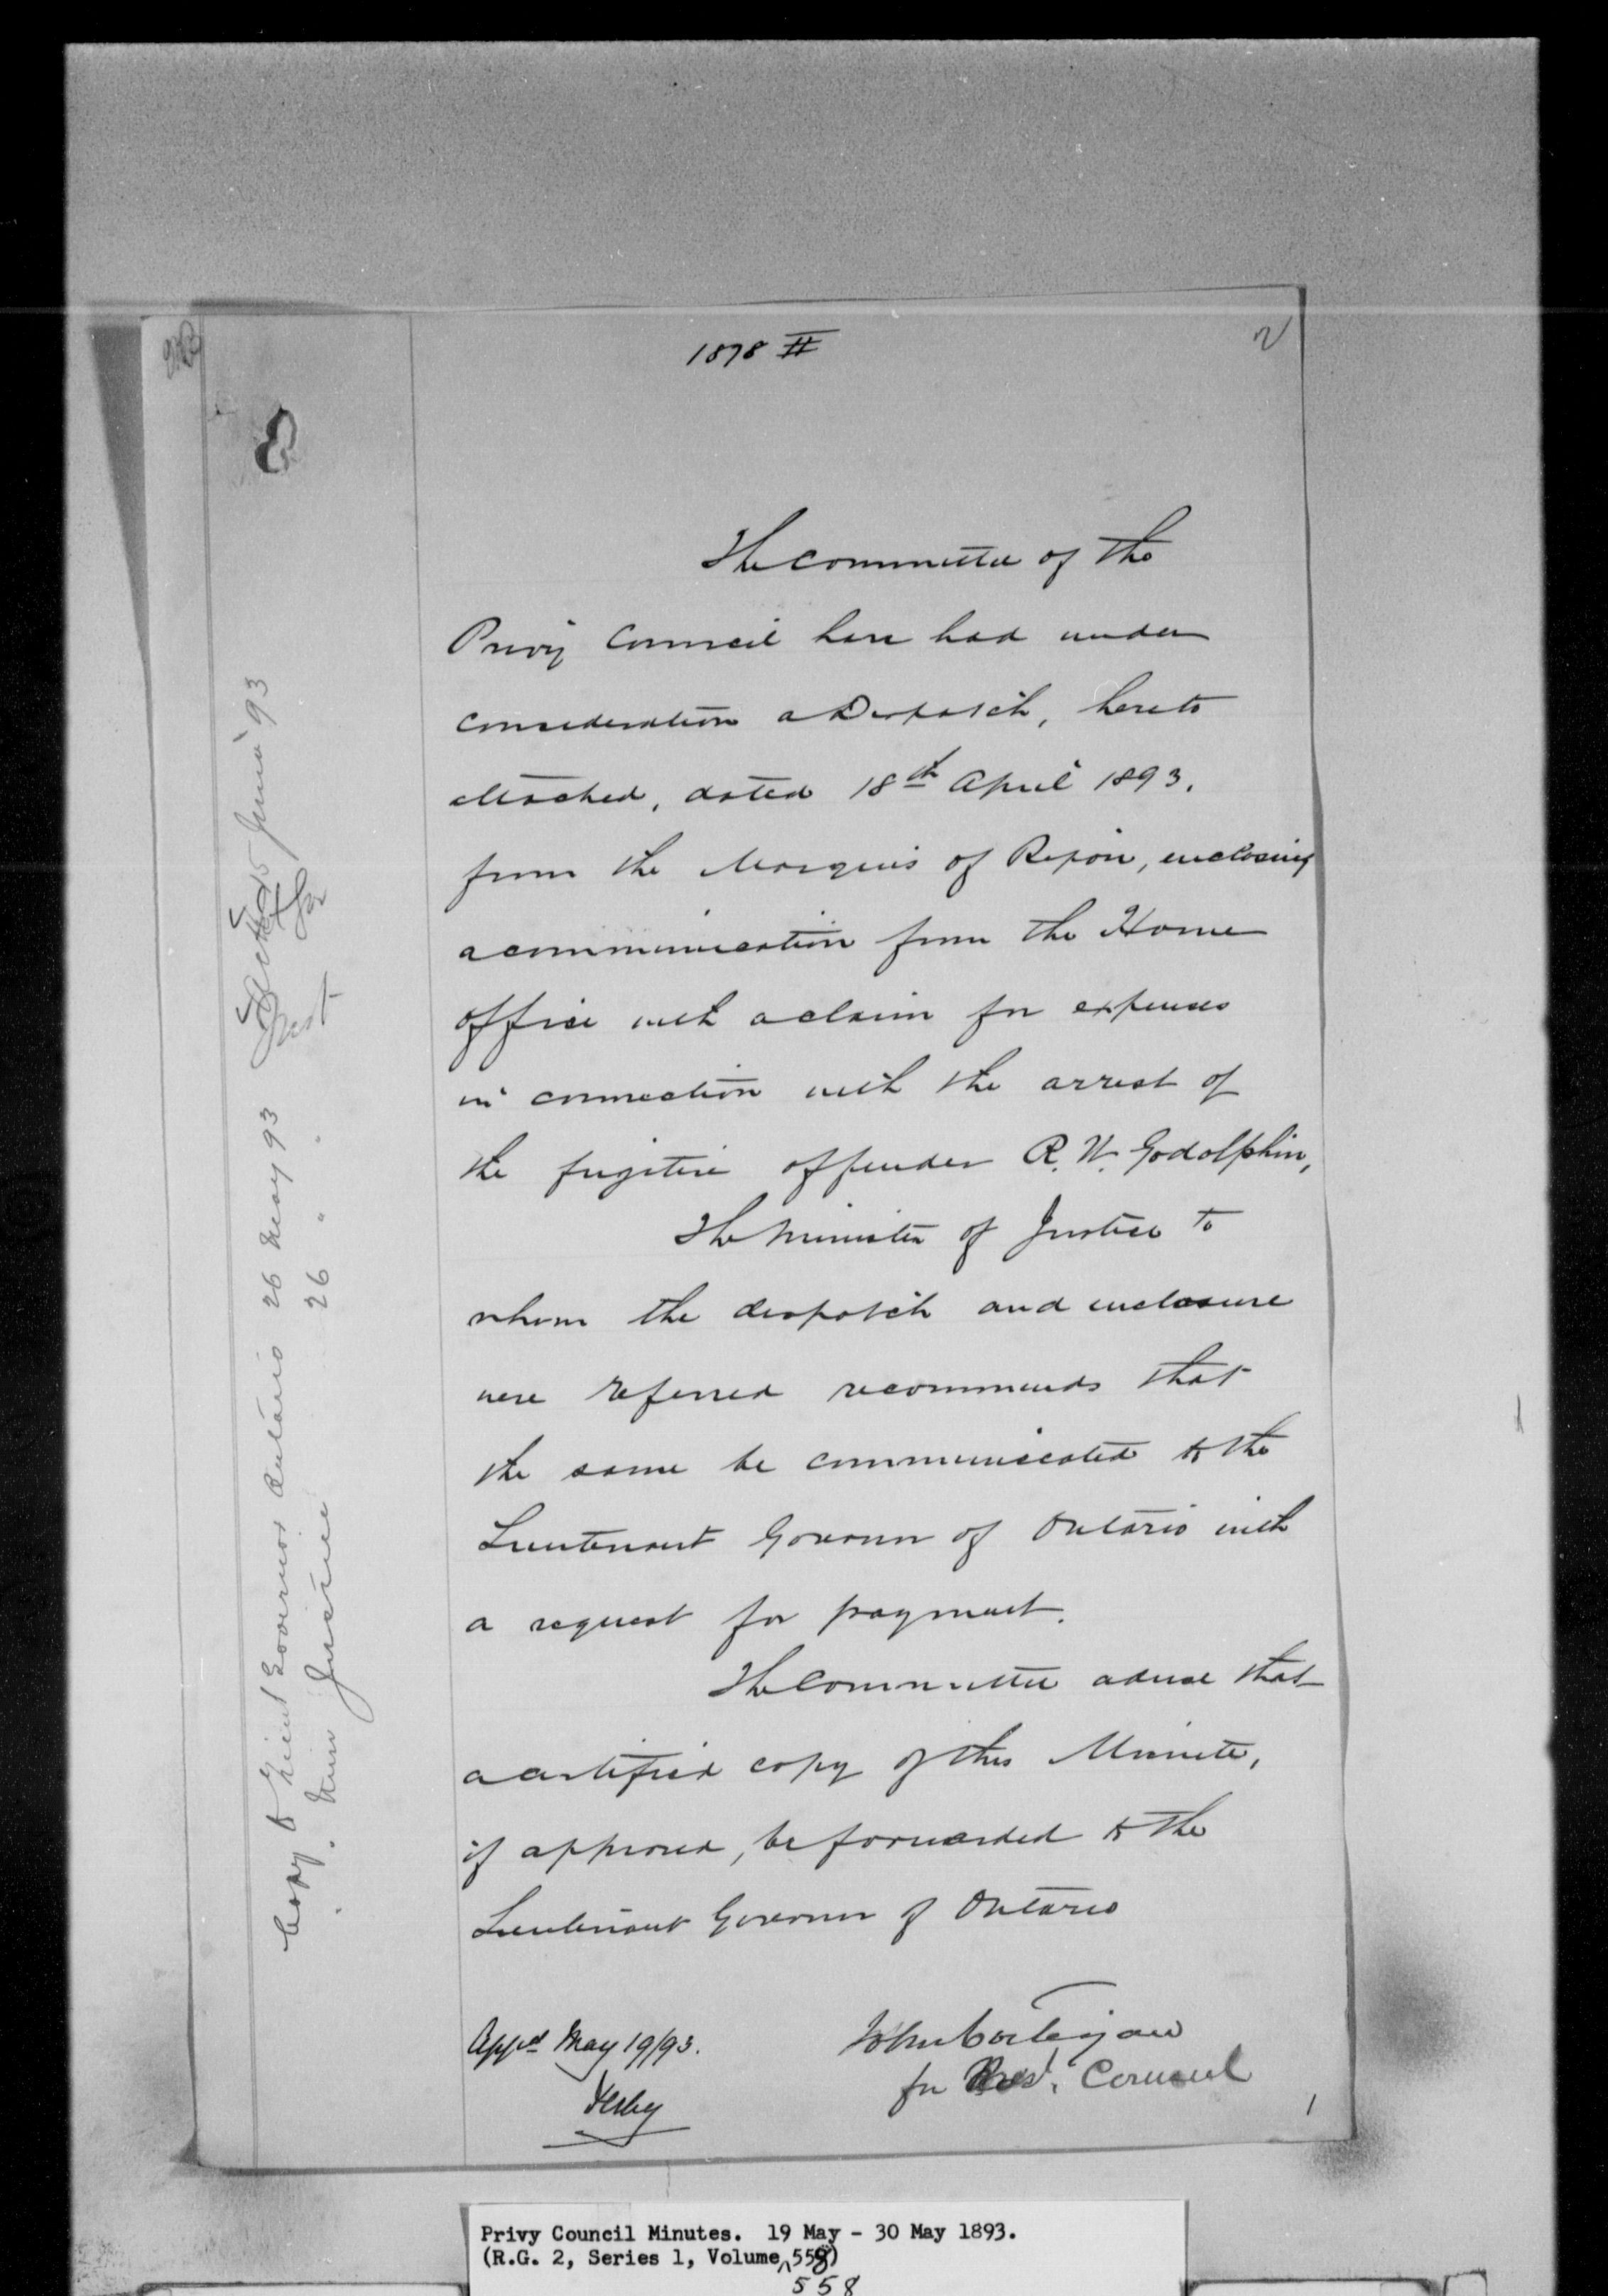 1878 II
2
E
The Committee of the
Privy Council have had under
consideration a Despatch, hereto
attached, dated 18th April 1893.
from the Marquis of Ripon, enclosing
a communication from the Home
Office with a claim for expenses
in connection with the arrest of
the fugitive offender R. W. Godolphin,
The Minister of Justice to
whom the despatch and enclosure
were referred recommends that
the same be communicated to the
Lieutenant Governor of Ontario with
a request for payment.
The Committee advise that
a certified copy of this Minute,
if approved, be forwarded to the
Lieutenant Governor of Ontario
John Costigan
for Pres. Council
Appd May 19/93.
Derby
1
Copy to Lieut Governor Ontario 26 May 93
" Min Justice 26 " "
June 93
Privy Council Minutes. 19 May - 30 May 1893.
(R.G. 2, Series 1, Volume 558)
558